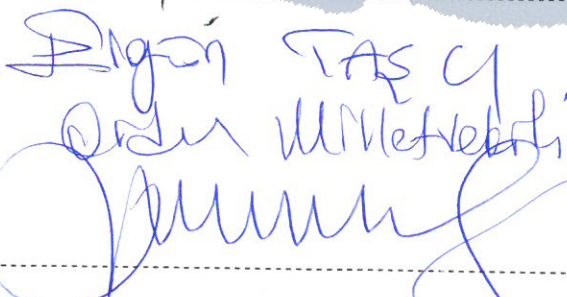 Ergün TAŞCI
Ordu Milletvekili